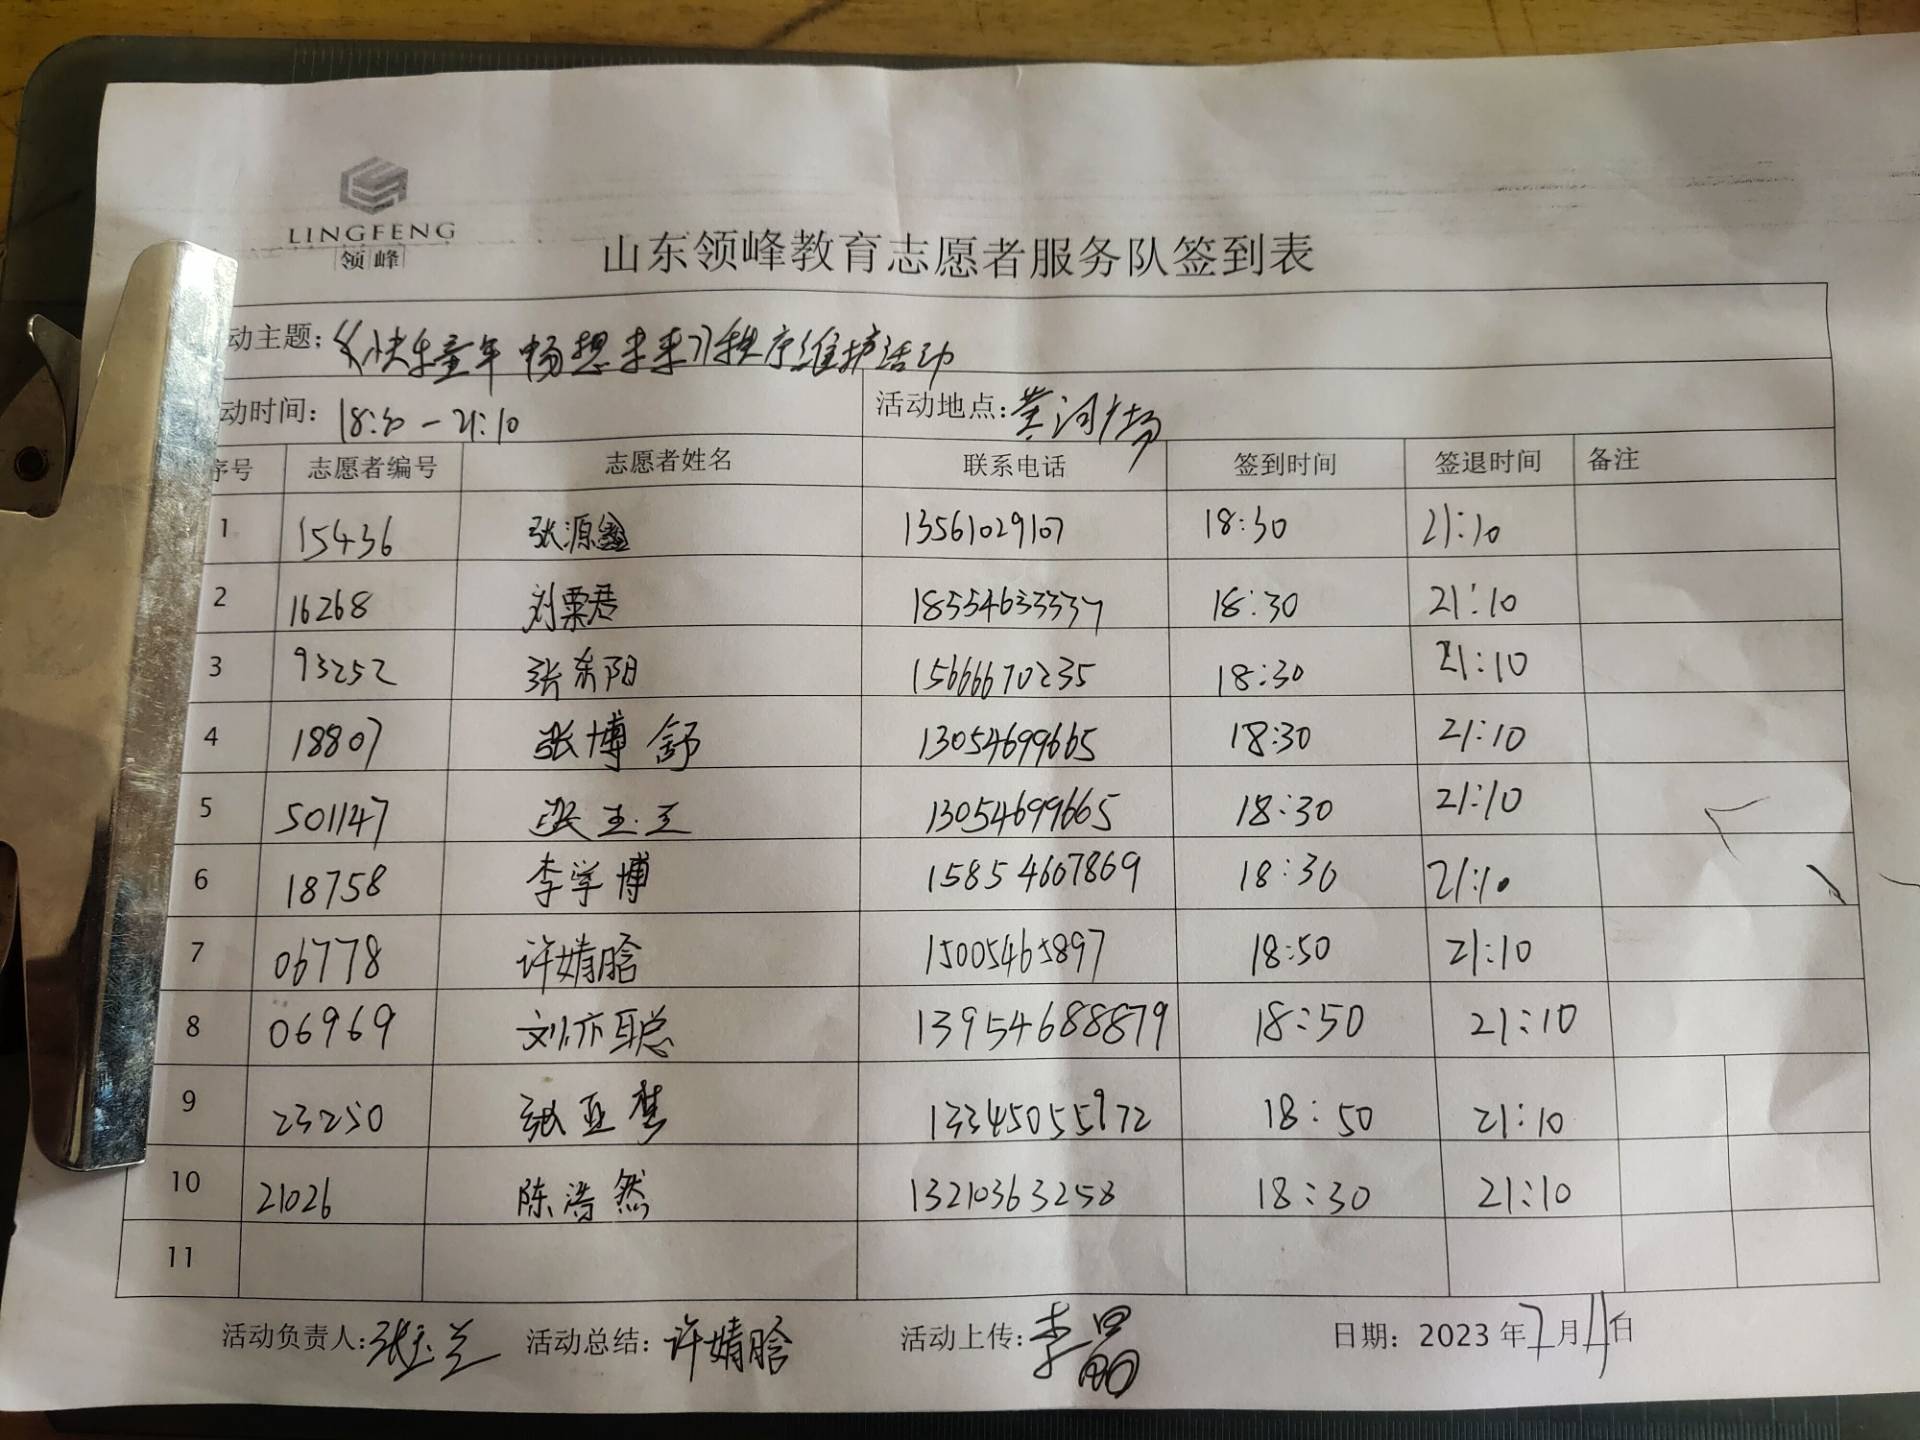 LINGFENG
领峰
山东领峰教育志愿者服务队签到表
动主题：《快乐童年 畅想未来》秩序维护活动
动时间：18:30-21:10 活动地点：黄河广场
序号 志愿者编号 志愿者姓名 联系电话 签到时间 签退时间 备注
1 15436 张源 13561029107 18:30 21:10
2 16268 刘栗君 18554633337 18:30 21:10
3 93252 张东阳 15666670235 18:30 21:10
4 18807 张博舒 13054699665 18:30 21:10
5 501147 张玉兰 13054699665 18:30 21:10
6 18758 李学博 15854667869 18:30 21:10
7 06778 许婧晗 15005465897 18:50 21:10
8 06969 刘亦聪 13954688879 18:50 21:10
9 23250 张亚梦 13345055972 18:50 21:10
10 21026 陈浩然 13210363258 18:30 21:10
11
活动负责人：张玉兰 活动总结：许婧晗 活动上传：李晶 日期：2023年7月11日